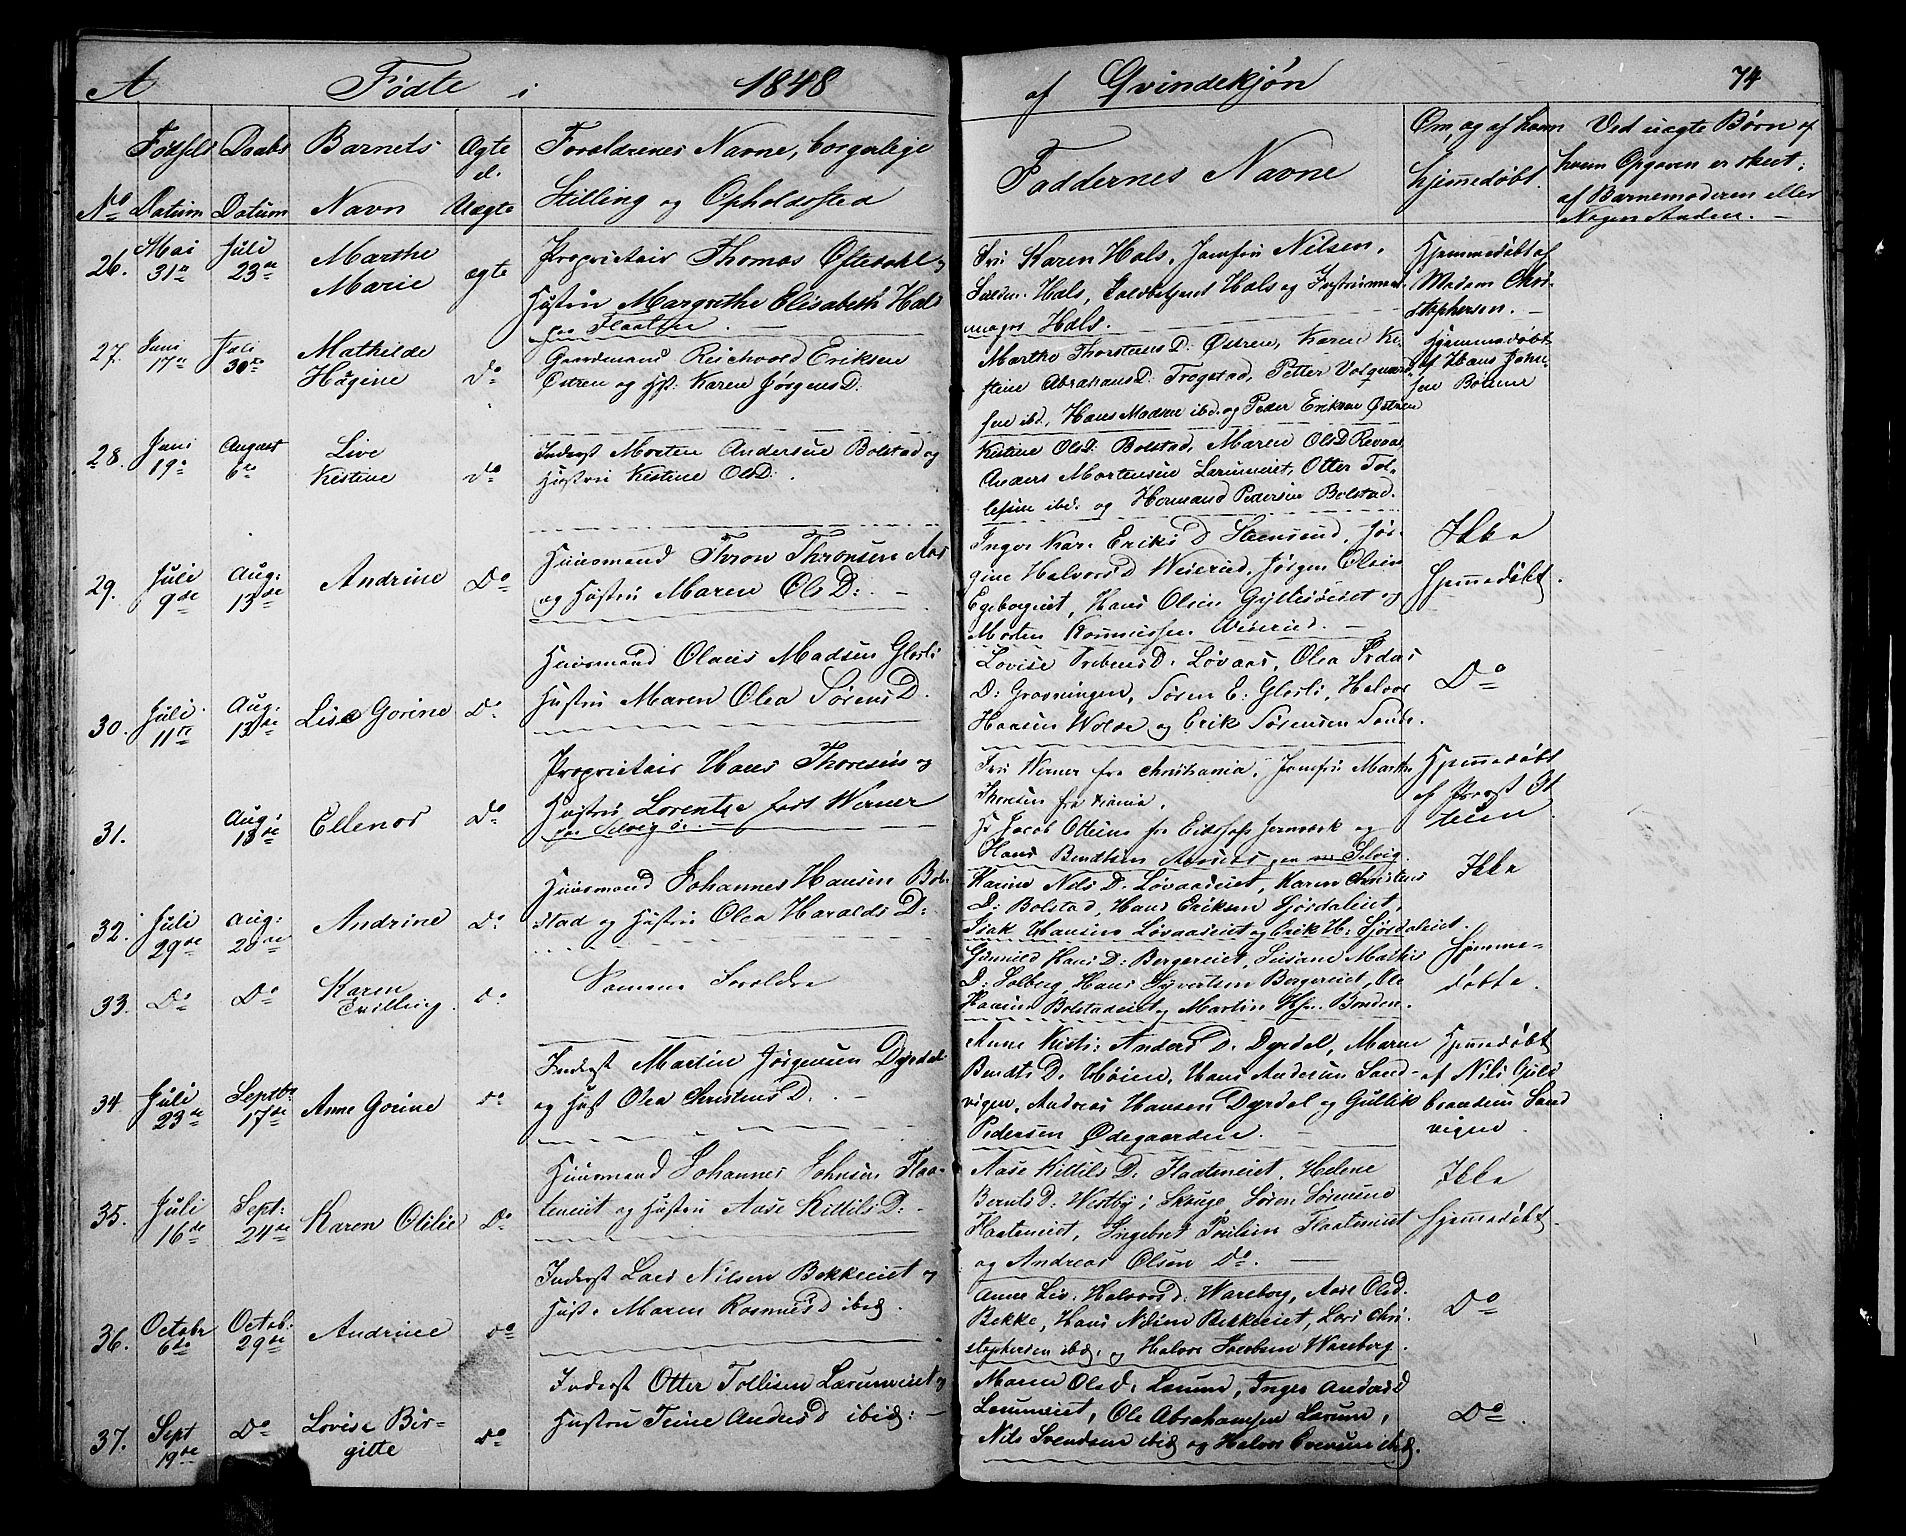 A Fødte i 1848 af Qvindekjøn 74
No
Fødsels Datum
Daabs Datum
Barnets Navn
Ægte el. Uægte
Forældrenes Navne, borgerlige
Stilling og Opholdssted
Faddernes Navne
Om, og af hvem
hjemmedøbt.
Ved uægte Børn af
hvem Opgaven er skeet;
af Barnemoderen eller
Nogen Anden.
26. Mai 31te Juli 23de Marthe Marie ægte
Proprietair Thomas Oftedahl og
Hustru Margrethe Elisabeth Hals
paa Flaatten.
Fru Karen Hals, Jomfru Nilsen,
Hals, Toldbetjent Hals og Instrument
mager Hals.
Hjemmedøbt af
Madam Chri-
stophersen.
27. Juni 17de Juli 30te Mathilde Hagine Do
Gaardmand Reichvald Eriksen
Østren og H: Karen JørgensD.
Marthe ThorstensD: Østren, Karen Ki-
stine AbrahamsD: Trogstad, Petter
sen ibd, Hans Madsen ibd. og Peder Eriksen Østren
Hjemmedøbt
af Hans John-
sen
28. Juni 19de August 6te Live Kistine Do
Inderst Morten Andersen Bolstad og
Hustru Kistine OlsD:.
Kistine OlsD: Bolstad, Maren OlsD. Revaa,
Anders Mortensen Larumeiet, Otter Tol-
lefsen ibd: og Hermand Pedersen Bolstad.
29. Juli 9de Aug: 13de Andrine Do
Huusmand Thron Thronsen Aas
og Hustru Maren OlsD:.
Inger Kari EriksD Steensrud, Jør-
gine HalvorsD Weierud, Jørgen Olsen
Egeborgeiet, Hans Olsen og
Morten Rasmussen Weierud.
Ikke
hjemmedøbt.
30. Juli 11te Aug. 13de Lise Gorine Do
Huusmand Olaus Madsen Glosli
Hustru Maren Olea SørensD.
Lovise PrebensD. Løvaas, Olea Peders
D: Gravningen, Søren E. Glosli, Halvor
Haasen Wolde og Erik Sørensen
Do
31. Aug: 13de Ellenor Do
Proprietair Hans Thoresen og
Hustru Lorentze født Werner
paa Selvig.
Fru Werner fra Christiania, Jomfru Marthe
Thoresen fra
Hr Jacob Ottesen fra Eidsfos Jernverk og
Hans Bendtsen paa Selvig.
Hjemmedøbt
af Provst
32. Juli 29de Aug: 20de Andrine Do
Huusmand Johannes Hansen Bol-
stad og Hustru Olea HaraldsD:
Karine NilsD. Løvaaseiet, Karen Christens
D: Bolstad, Hans Eriksen Fjørdaleiet,
Isak Hansen Løvaaseiet og Erik H: Fjørdaleiet.
Ikke
33. Do Do Karen Tvilling. do
Samme Forældre
Gunnild HansD: Bergereiet, Susane Mathis
D: Solberg, Hans Syvertsen Bergereiet, Ole
Haasen Bolstadeiet og Martin Bonden.
hjemme-
døbte.
34 Juli 23de Septbr: 17de Anne Gorine do
Inderst Martin Jørgensen Dyrdal
og Hust Olea ChristensD.
Anne Kisti: AndersD. Dyrdal, Maren
BendtsD. Høien, Hans Andersen Sand-
vigen, Andreas Hansen Dyrdal og Gullik
Pedersen Ødegaarden.
Hjemmedøbt
af Nils Guld-
brandsen Sand
vigen.
35. Juli 16de Sept: 24de Karen Otilie Do
Huusmand Johannes Johnsen Flaa-
teneiet og Hustru Aase KittilsD:
Aase KittilsD: Flaateneiet, Helene
BerntsD: Westby i Skouge, Søren Sørensen
Flaateneiet, Ingebret Poulsen Flaateneiet
og Andreas Olsen Do.
Ikke
hjemmedøbt.
36. Octobr 6te Octob: 29de Andrine do
Inderst Lars Nilsen Bekkeeiet og
Hust. Maren RasmusD ibd.
Anne Liv: HalvorsD: Wareberg, Aase OlsD.
Bekke, Hans Nilsen Bekkeeiet, Lars Chri-
stophersen ibd. og Halvor Jacobsen Wareberg.
Do
37. Sept 19de Do Lovise Bir-gitte do
Inderst Otter Tollefsen Larumeiet og
Hustru Trine AndersD ibid:
Maren OlsD: Larum, Inger AndersD
Larumeiet, Ole Abrahamsen Larum,
Nils Svendsen ibid og Halvor Evensen ibid.
Do.